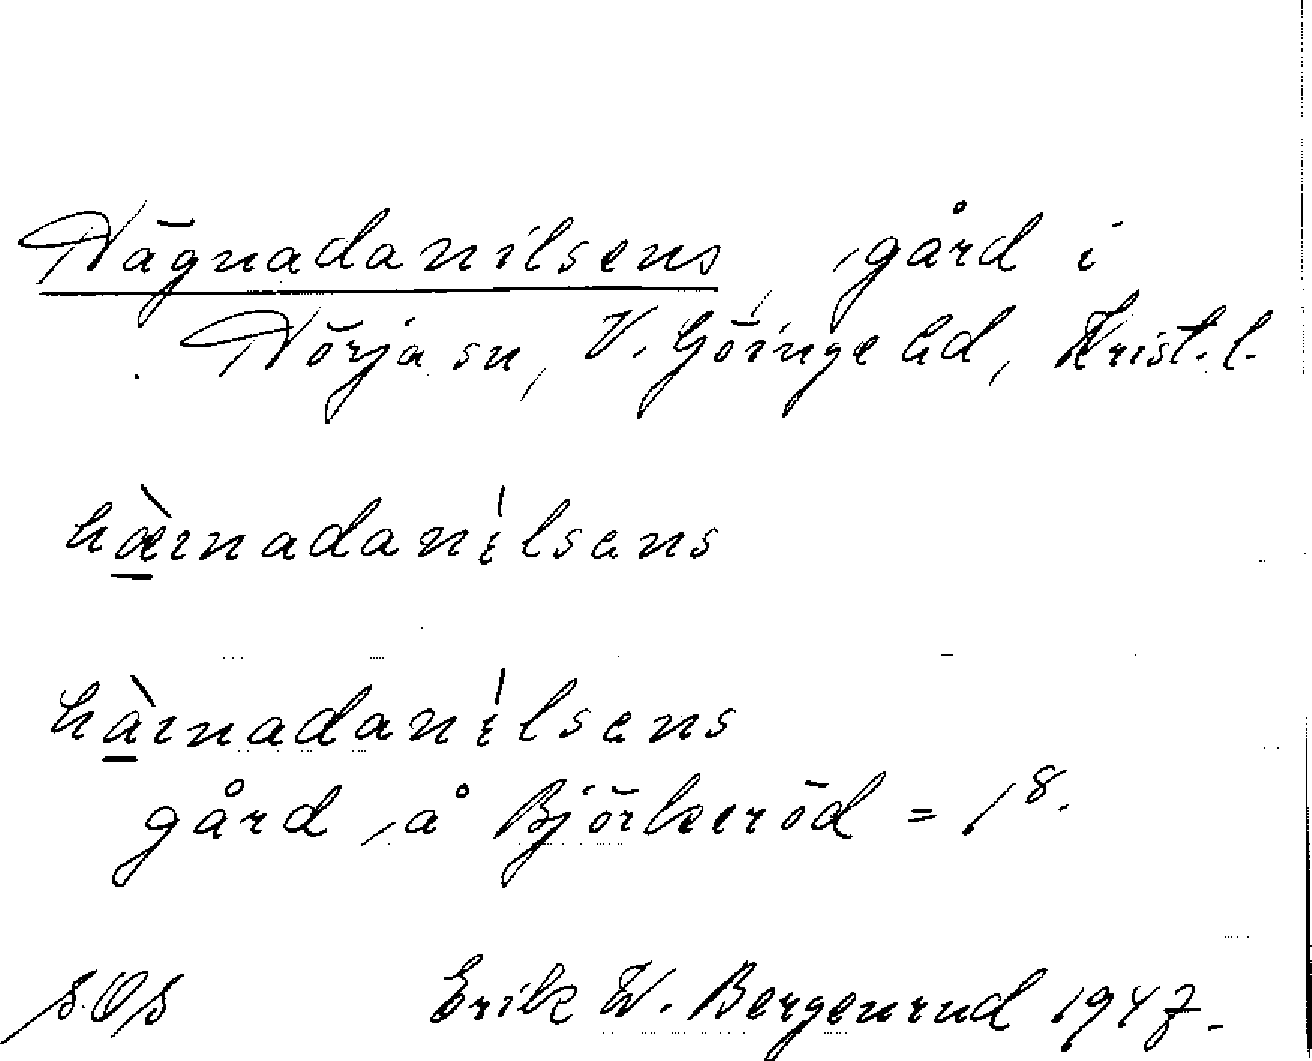 Hägnadanilsens, gård i
Hörja sn, V. Göinge hd, Krist. l.
hæ̀ɪnadanɪ́lsəns
hàɪnadanɪ́lsəns
gård, å Björkeröd = 1⁸.
Erik W. Bergenrud 1947.